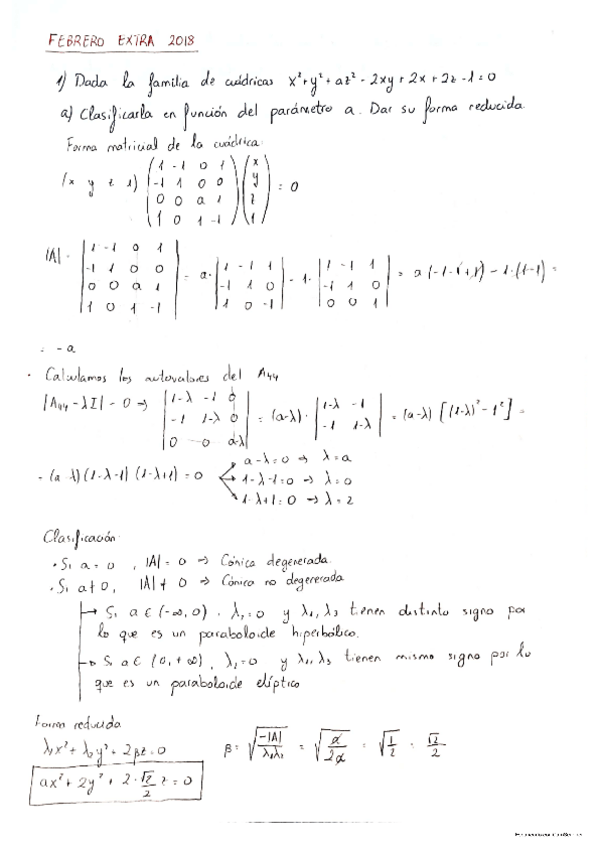 FEBRERO EXTRA 2018
1) Dada la familia de cuádricas x²+y²+az²-2xy+2x+2z-1=0
a) Clasificarla en función del parámetro a. Dar su forma reducida.
Forma matricial de la cuádrica:
(x y z 1) (1 -1 0 1 / -1 1 0 0 / 0 0 a 1 / 1 0 1 -1) (x / y / z / 1) = 0
|A| = |1 -1 0 1 / -1 1 0 0 / 0 0 a 1 / 1 0 1 -1| = a· |1 -1 1 / -1 1 0 / 1 0 -1| - 1· |1 -1 1 / -1 1 0 / 0 0 1| = a (-1-1+1) - 1·(1-1) =
= -a
· Calculamos los autovalores del A44
|A44 - λI| = 0 => |1-λ -1 0 / -1 1-λ 0 / 0 0 a-λ| = (a-λ)· |1-λ -1 / -1 1-λ| = (a-λ) [(1-λ)² - 1²] =
= (a-λ)(1-λ-1)(1-λ+1) = 0
a-λ=0 => λ=a
1-λ-1=0 => λ=0
1-λ+1=0 => λ=2
Clasificación:
· Si a=0, |A|=0 => Cónica degenerada.
· Si a≠0, |A|≠0 => Cónica no degenerada
Si a∈(-∞,0), λ₁=0 y λ₂,λ₃ tienen distinto signo por
lo que es un paraboloide hiperbólico.
Si a∈(0,+∞), λ₁=0 y λ₂,λ₃ tienen mismo signo por lo
que es un paraboloide elíptico
Forma reducida
λ₁x²+λ₂y²+2βz=0 β= √(-|A|/λ₁λ₂) = √(a/2a) = √(1/2) = √2/2
ax²+2y²+2·√2/2 z=0